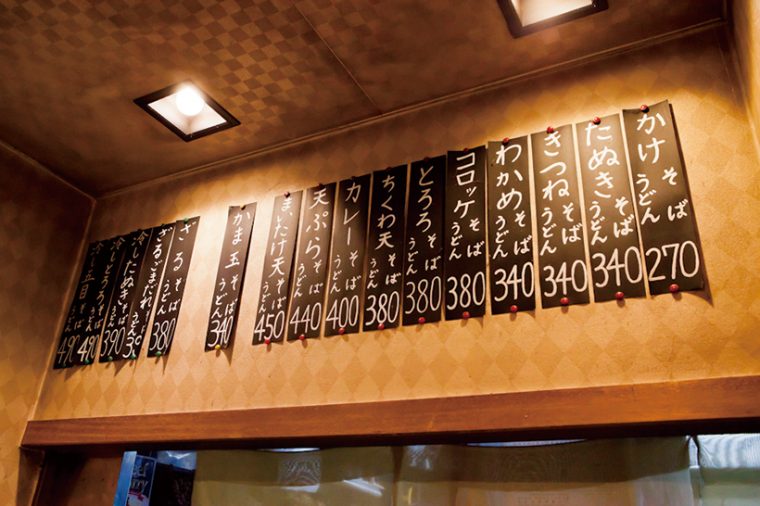 かけそばうどん270
たぬきそばうどん340
きつねそばうどん340
わかめそばうどん340
コロッケそばうどん380
とろろそばうどん380
ちくわ天そばうどん380
カレーそばうどん400
天ぷらそばうどん440
まいたけ天そばうどん450
かま玉そばうどん340
ざるそばうどん380
ざるごまだれそばうどん
冷したぬきそばうどん390
冷しとろろそばうどん490
冷し そばうどん490